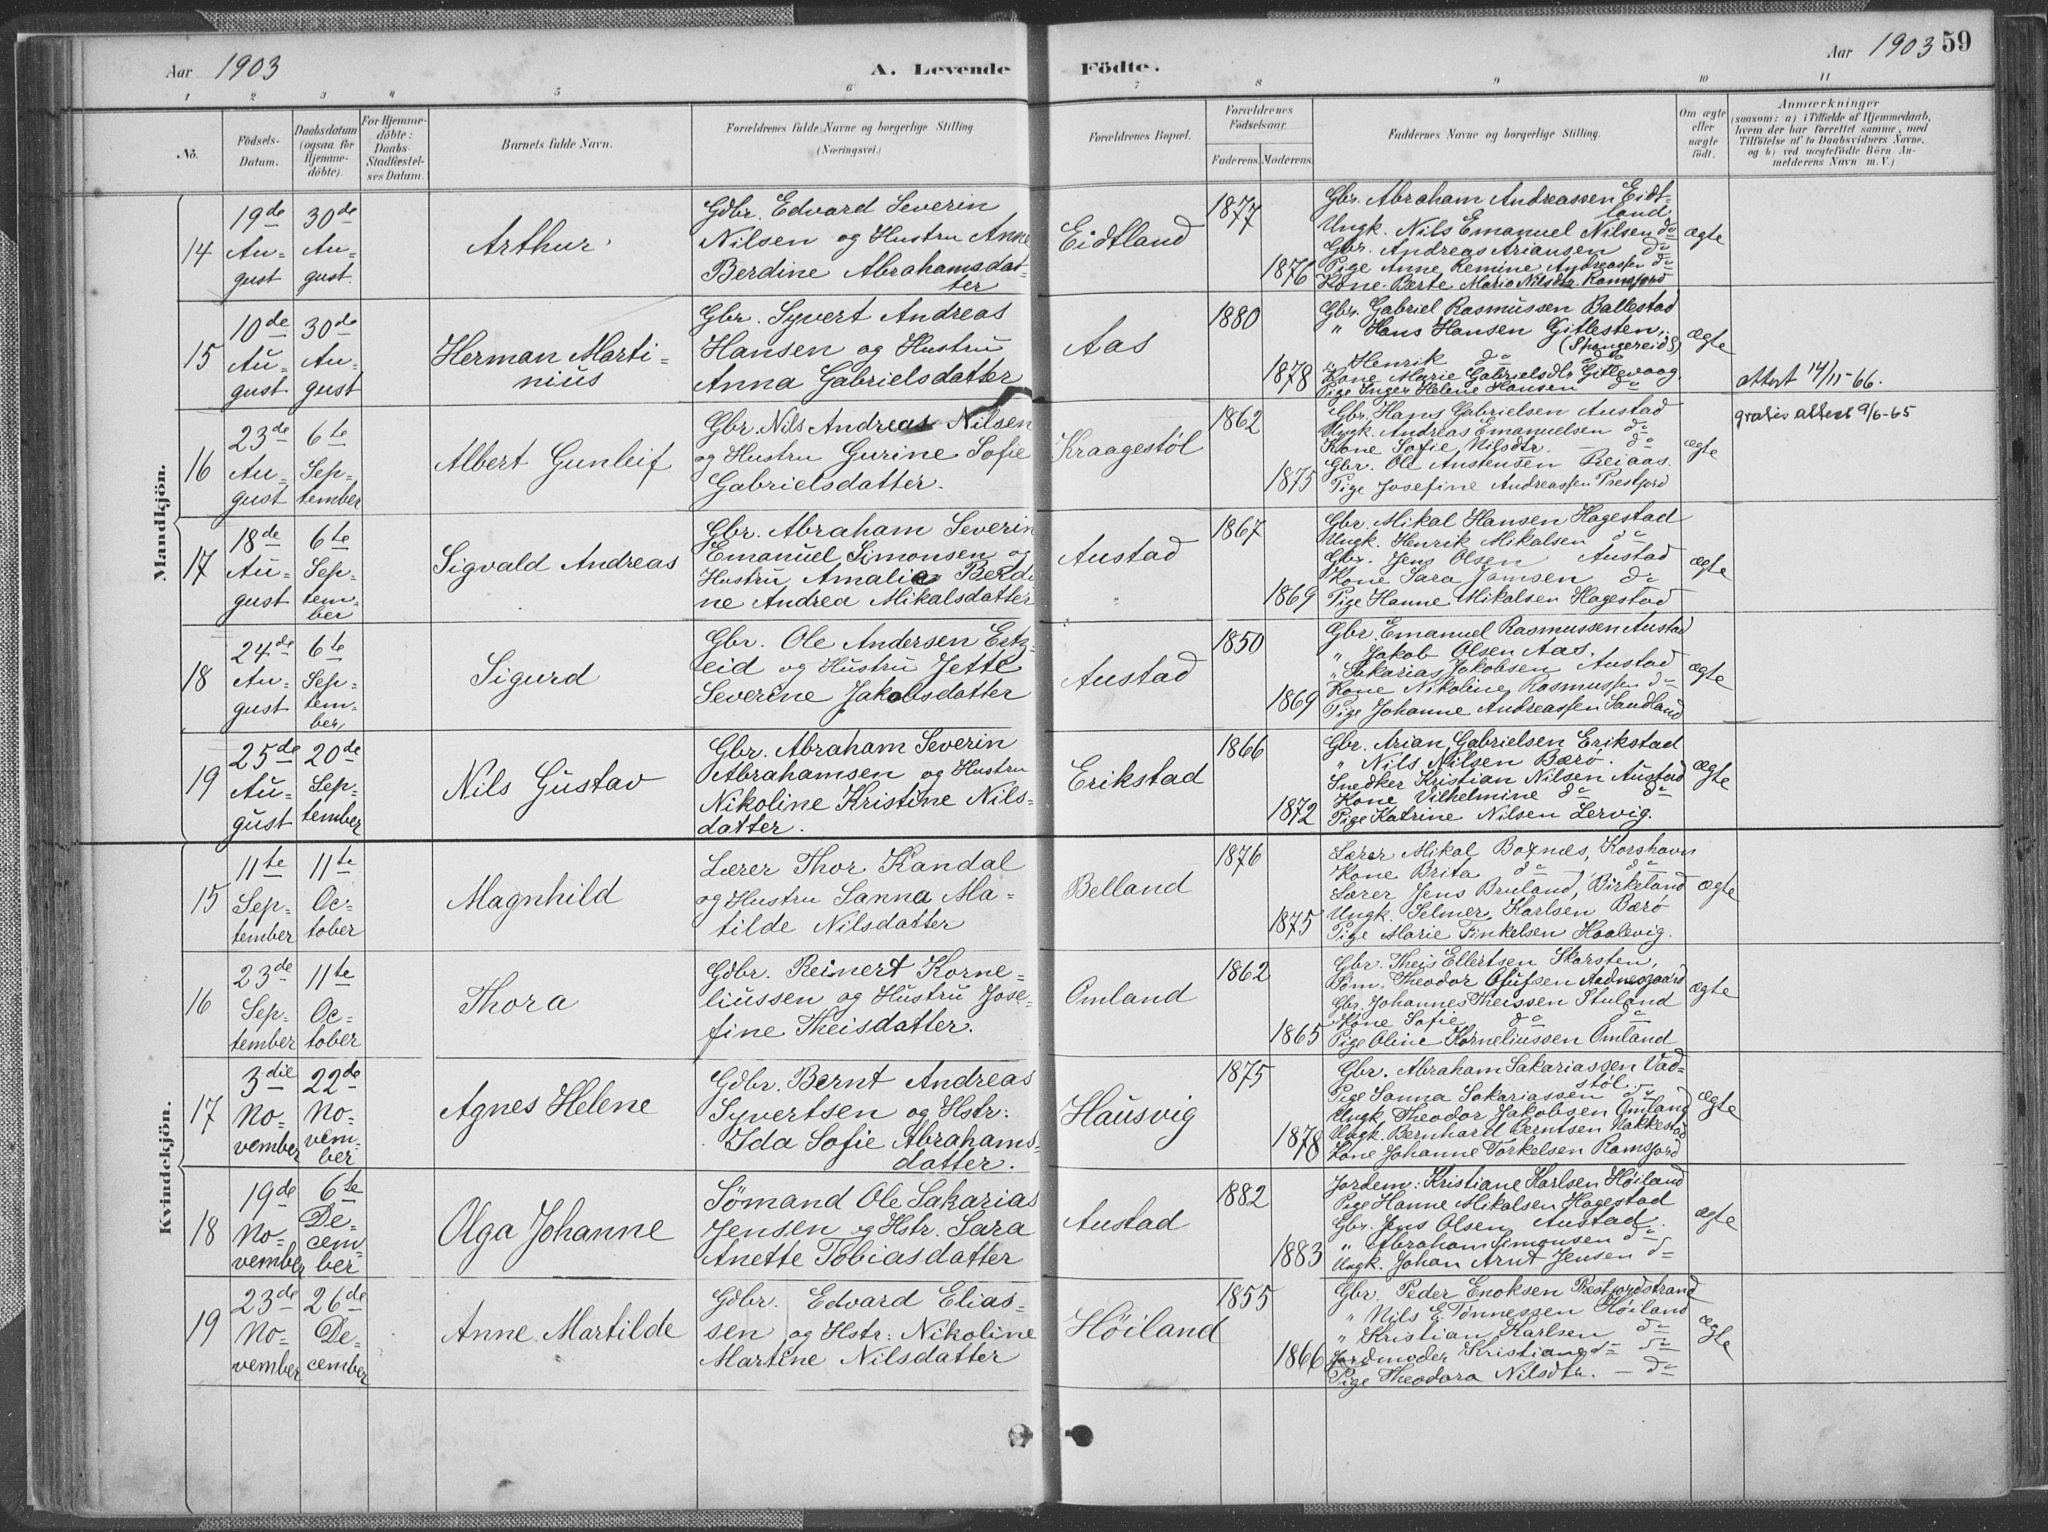 Aar 1903
A. Levende Födte.
Aar 1903 59
1 2 3 4 5 6 7 8 9 10 11
No.
Födsels-Datum.
Daabsdatum (ogsaa for Hjemmedöbte).
For Hjemmedöbte: Daabs-Stadfæstelses Datum.
Barnets fulde Navn.
Forældrenes fulde Navne og borgerlige Stilling.
(Næringsvei.)
Forældrenes Bopæl.
Forældrenes Födselsaar.
Faderens. Moderens.
Faddernes Navne og borgerlige Stilling.
Om ægte eller uægte födt.
Anmærkninger
(saasom: a) i Tilfælde af Hjemmedaab,
hvem der har forrettet samme, med
Tilföielse af to Daabsvidners Navne,
og b) ved uægtefödte Börn An-
melderens Navn m. V.)
Mandkjön.
14
19de August
30de August.
Arthur.
Gdbr. Edvard Severin
Nilsen og Hustru Anne
Berdine Abrahamsdat-
ter
Eidtland
1877
1876
Gbr. Abraham Andreassen Eidt-
land
Ungk. Nils Emanuel Nilsen do
Gbr. Andreas Ariansen do
Pige Anne Remine Andreassen do
Kone Berte Marie Nilsdtr. Ramsfjord
ægte
15
10de August
30de August
Herman Marti-
nius
Gbr. Syvert Andreas
Hansen og Hustru
Anna Gabrielsdatter
Aas
1880
1878
Gbr. Gabriel Rasmussen Ballestad
" Hans Hansen Gitlesten,
(Spangereid S)
" Henrik do do
Kone Marie Gabrielsdtr Gitlevaag.
Pige Inger Helene Hansen do
ægte
attest 14/11-66.
16
23de August
6te September
Albert Gunleif
Gbr. Nils Andreas Nilsen
og Hustru Gurine Sofie
Gabrielsdatter.
Kraagestöl
1862
1875
Gbr. Hans Gabrielsen Austad
Ungk. Andreas Emanuelsen do
Kone Sofie Nilsdtr. — do
Gbr. Ole Austensen Reiaas.
Pige Josefine Andreassen Prestfjord
ægte
gratis attest 9/6-65
17
18de August
6te September
Sigvald Andreas
Gbr. Abraham Severin
Emanuel Simonsen og
Hustru Amalie Berdi
ne Andrea Mikalsdatter
Austad
1867
1869
Gbr. Mikal Hansen Hagestad
Ungk. Henrik Mikalsen do
Gbr. Jens Olsen Austad
Kone Sara Jamsen do
Pige Hanne Mikalsen Hagestad
ægte
18
24de August
6te September
Sigurd
Gbr. Ole Andersen Ertz-
eid og Hustru Jette
Severine Jakobsdatter
Austad
1850
1869
Gbr. Emanuel Rasmussen Austad
" Jakob Olsen Aas.
" Sakarias Jakobsen Austad
Kone Nikoline Rasmussen do
Pige Johanne Andreassen Sandland
ægte
19
25de August
20de September
Nils Gustav
Gbr. Abraham Severin
Abrahamsen og Hustru
Nikoline Kristine Nils-
datter.
Erikstad
1866
1872
Gbr. Arian Gabrielsen Erikstad
" Nils Nilsen Bærö.
Snedker Kristian Nilsen Austad
Kone Vilhelmine do do
Pige Katrine Nilsen Lervig.
ægte
Kvindekjön.
15
11te September
11te October
Magnhild
Lærer Thor Kandal
og Hustru Sanna Ma-
tilde Nilsdatter
Belland
1876
1875
Lærer Mikal Boxnæs, Korshavn
Kone Brita do, do
Lærer Jens Bruland, Birkeland
Ungk. Selmer Karlsen Bærö
Pige Marie Finkelsen Haalevig.
ægte
16
23de September
11te October
Thora
Gdbr. Reinert Korne-
liussen og Hustru Jose-
fine Theisdatter.
Omland
1862
1865
Gbr. Theis Ellertsen Skarsten,
Söm. Theodor Olufsen Aadnesgaard
Gbr. Johannes Theissen Stuland
Kone Sofie do do
Pige Oline Korneliussen Omland
ægte
17
3die November
22de November
Agnes Helene
Gdbr. Bernt Andreas
Syvertsen og Hstr:
Ida Sofie Abrahams-
datter.
Hausvig
1875
1878
Gbr. Abraham Sakariassen Vad-
stöl.
Pige Sanna Sakariassen do
Ungk Theodor Jakobsen Omland
Ungk. Bernhard Berntsen Nakkestad
Kone Johanne Torkelsen Ramsfjord
ægte
18
19de November
6te December
Olga Johanne
Sömand Ole Sakarias
Jensen og Hstr. Sara
Anette Tobiasdatter
Austad
1882
1883
Jordem: Kristiane Karlsen Höiland
Pige Hanne Mikalsen Hagestad
Gbr. Jens Olsen Austad.
" Abraham Simonsen do
Ungk. Johan Arnt Jensen do
ægte
19
23de November
26de December
Anne Martilde
Gdbr. Edvard Elias-
sen og Hstr: Nikoline
Martine Nilsdatter
Höiland
1855
1866
Gbr. Peder Enoksen Prestfjordstrand
" Nils E. Tönnessen Höiland
" Kristian Karlsen do
Jordmoder Kristiane do do
Pige Theodora Nilsdtr. — do
ægte